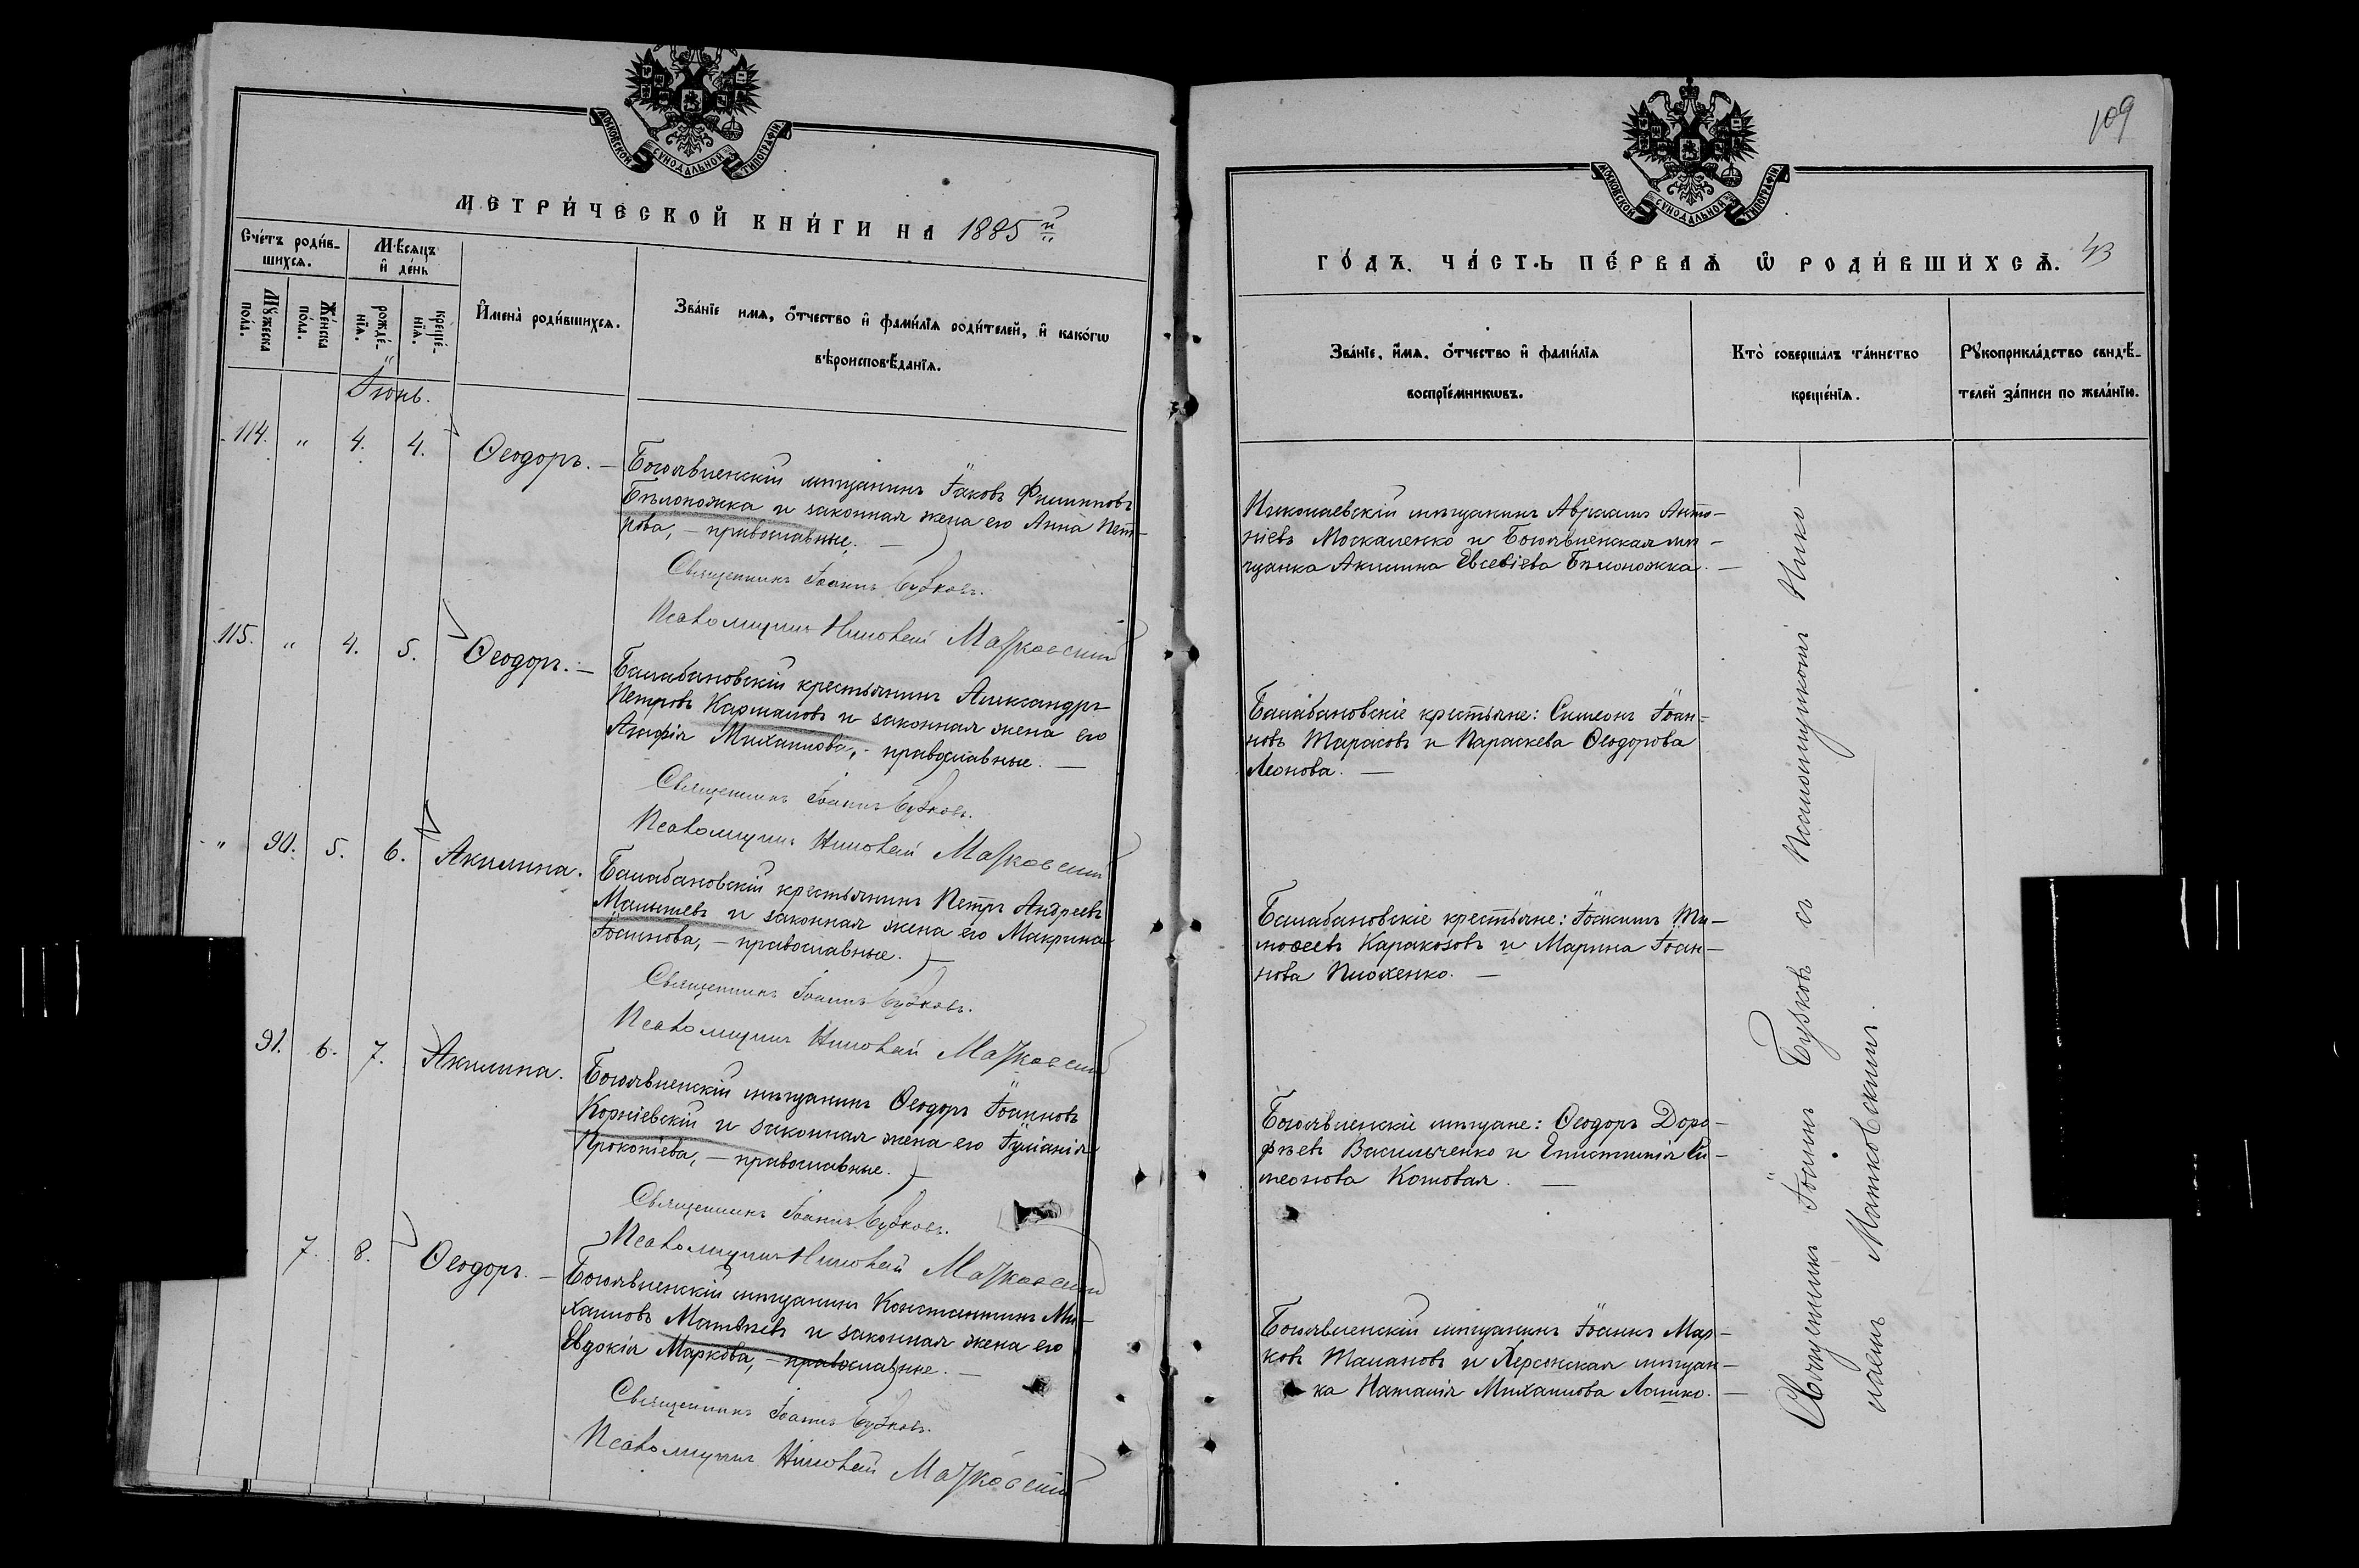 МОСКОВСКОЙ СУНОДАЛЬНОЙ ТИПОГРАФІИ
МЕТРИ́ЧЕСКОЙ КНИ́ГИ НА 1885 й
Счétъ роди́в-
шихсѧ.
Мѣсяцъ
и҆ де́нь
Мꙋ́жеска
по́ла.
Же́нска
по́ла.
рожде́-
нїѧ.
креще́-
нїѧ.
И҆мена̀ роди́вшихсѧ.
Зва́нїе имѧ, ѻ҆́тчество и҆ фами́лїѧ роди́телей, и҆ како́гѡ
вѣроисповѣ́данїѧ.
Іюнь.
114. " 4. 4. Ѳеодоръ. —
Богоявленскій мѣщанинъ Іаковъ Филипповъ
Бѣлоножка и законная жена его Анна Пет-
рова, — православные. —
Священникъ Іоаннъ Бужковъ.
Псаломщикъ Николай Матковский
115. " 4. 5. Ѳеодоръ. —
Балабановскій крестьянинъ Александръ
Петровъ Кармановъ и законная жена его
Агафія Михаилова, — православные. —
Священникъ Іоаннъ Бужковъ.
Псаломщикъ Николай Матковский
" 90. 5. 6. Акилина.
Балабановскій крестьянинъ Петръ Андреевъ
Малышевъ и законная жена его Макрина
Іоаннова, — православные. —
Священникъ Іоаннъ Бужковъ.
Псаломщикъ Николай Матковский
91. 6. 7. Акилина.
Богоявленскій мѣщанинъ Ѳеодоръ Іоанновъ
Корніевскій и законная жена его Іуліанія
Прокопіева, — православные. —
Священникъ Іоаннъ Бужковъ.
Псаломщикъ Николай Матковский
7. 8. Ѳеодоръ. —
Богоявленскій мѣщанинъ Константинъ Ми-
хаиловъ Матвѣевъ и законная жена его
Евдокія Маркова, — православные. —
Священникъ Іоаннъ Бужковъ.
Псаломщикъ Николай Матковский
109
МОСКОВСКОЙ СУНОДАЛЬНОЙ ТИПОГРАФІИ
ГО́ДЪ. ЧА́СТЬ ПЕ́РВАѦ Ѡ҆ РОДИ́ВШИХСѦ. 43
Зва́нїе, и҆́мѧ, ѻ҆́тчество и҆ фами́лїѧ
воспрїе́мникѡвъ.
Кто̀ соверша́лъ та́инство
креще́нїѧ.
Рꙋкоприкла́дство свидѣ́-
телей за́писи по жела́нїю.
Николаевскій мѣщанинъ Авраамъ Анто-
ніевъ Москаленко и Богоявленская мѣ-
щанка Акилина Евсевіева Бѣлоножка. —
Балабановскіе крестьяне: Симеонъ Іоан-
новъ Тарасовъ и Параскева Ѳеодорова
Леонова. —
Балабановскіе крестьяне: Іоакимъ Ти-
моѳеевъ Каракозовъ и Марина Іоан-
нова Плохенко. —
Богоявленскіе мѣщане: Ѳеодоръ Доро-
фѣевъ Васильченко и Епистимія Си-
меонова Котовая. —
Богоявленскій мѣщанинъ Іоаннъ Мар-
ковъ Талановъ и Херсонская мѣщан-
ка Наталія Михаилова Лошко. —
Священникъ Іоаннъ Бужковъ съ Псаломщикомъ Нико-
лаемъ Матковскимъ.